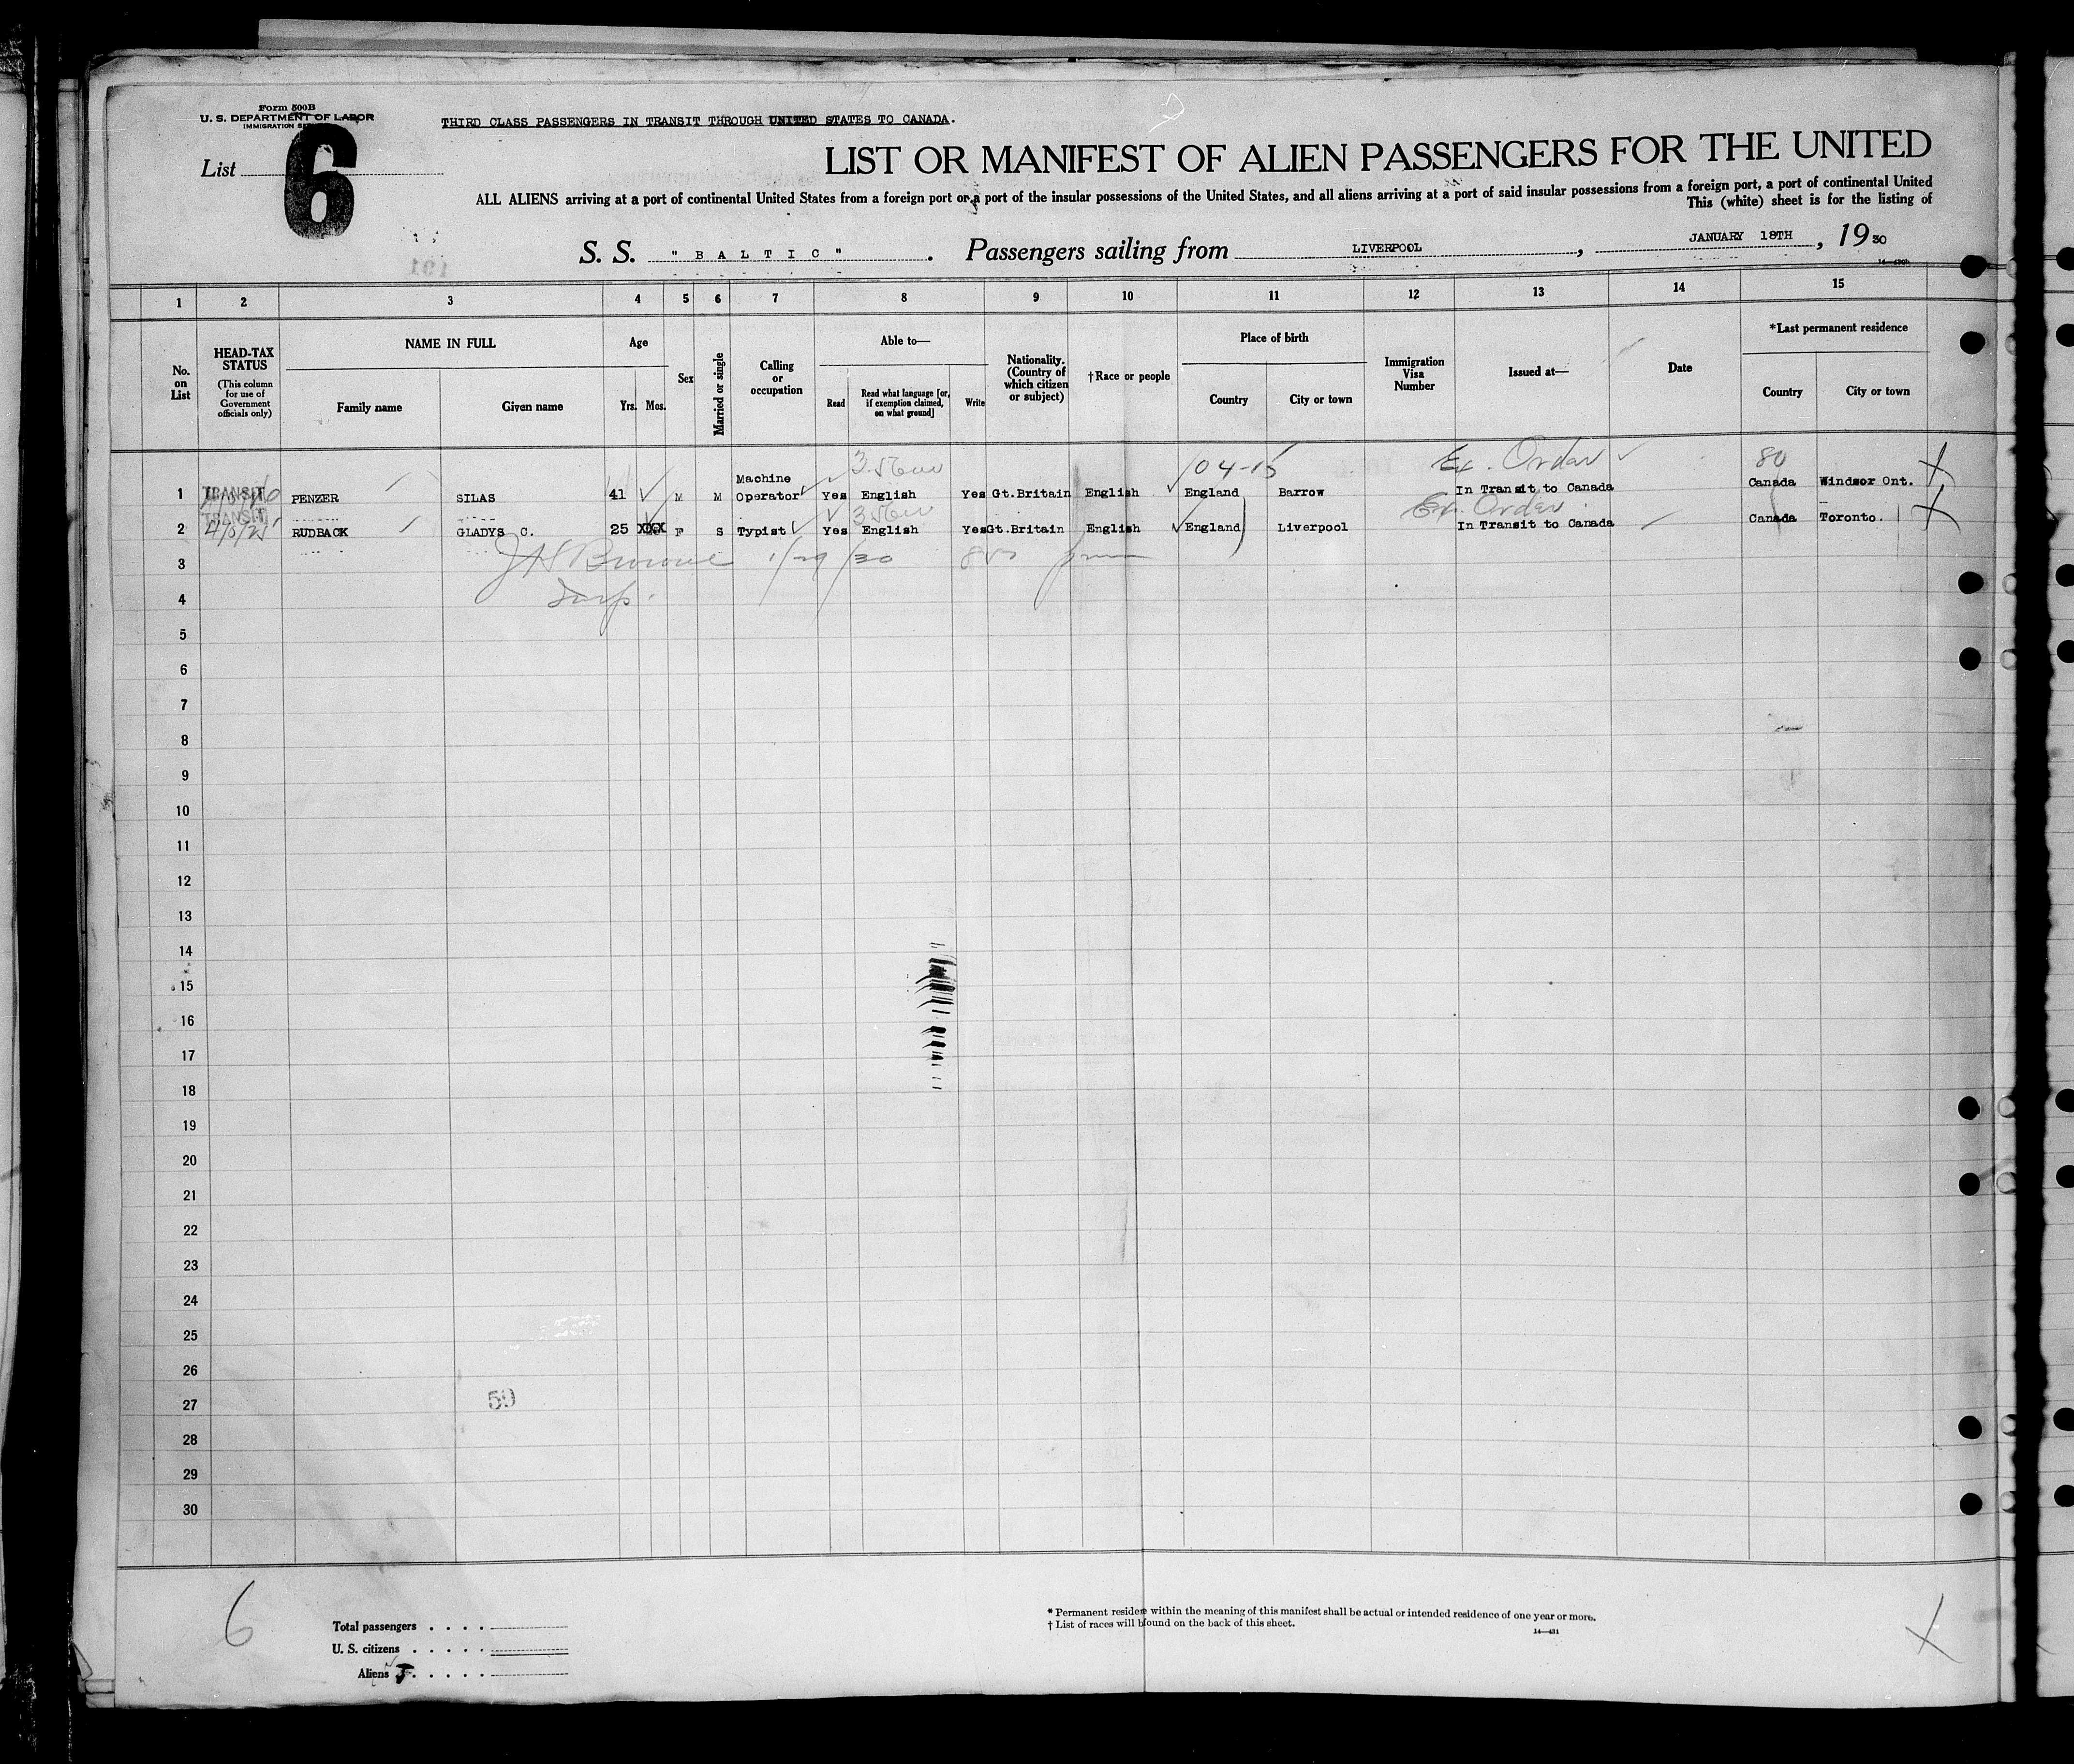 Form 500B
U. S. DEPARTMENT OF LABOR
IMMIGRATION
THIRD CLASS PASSENGERS IN TRANSIT THROUGH UNITED STATES TO CANADA.
List 6
LIST OR MANIFEST OF ALIEN PASSENGERS FOR THE UNITED
ALL ALIENS arriving at a port of continental United States from a foreign port or a port of the insular possessions of the United States, and all aliens arriving at a port of said insular possessions from a foreign port, a port of continental United
This (white) sheet is for the listing of
S. S. "BALTIC". Passengers sailing from LIVERPOOL, JANUARY 18TH, 1930
1 2 3 4 5 6 7 8 9 10 11 12 13 14 15
No. on List
HEAD-TAX STATUS
(This column for use of Government officials only)
NAME IN FULL
Family name Given name
Age
Yrs. Mos.
Sex
Married or single
Calling or occupation
Able to—
Read
Read what language [or, if exemption claimed, on what ground]
Write
Nationality. (Country of which citizen or subject)
†Race or people
Place of birth
Country City or town
Immigration Visa Number
Issued at—
Date
*Last permanent residence
Country City or town
104-15 Ex. Order 80
1 TRANSIT PENZER SILAS 41 M M Machine Operator Yes English Yes Gt.Britain English England Barrow In Transit to Canada Canada Windsor Ont.
Ex. Order
2 TRANSIT RUDBACK GLADYS C. 25 XXX F S Typist Yes English Yes Gt.Britain English England Liverpool In Transit to Canada Canada Toronto.
3 1/29/30
4 Insp.
5
6
7
8
9
10
11
12
13
14
15
16
17
18
19
20
21
22
23
24
25
26
27 59
28
29
30
6
Total passengers
U. S. citizens
Aliens
* Permanent residence within the meaning of this manifest shall be actual or intended residence of one year or more.
† List of races will be found on the back of this sheet.
14—431